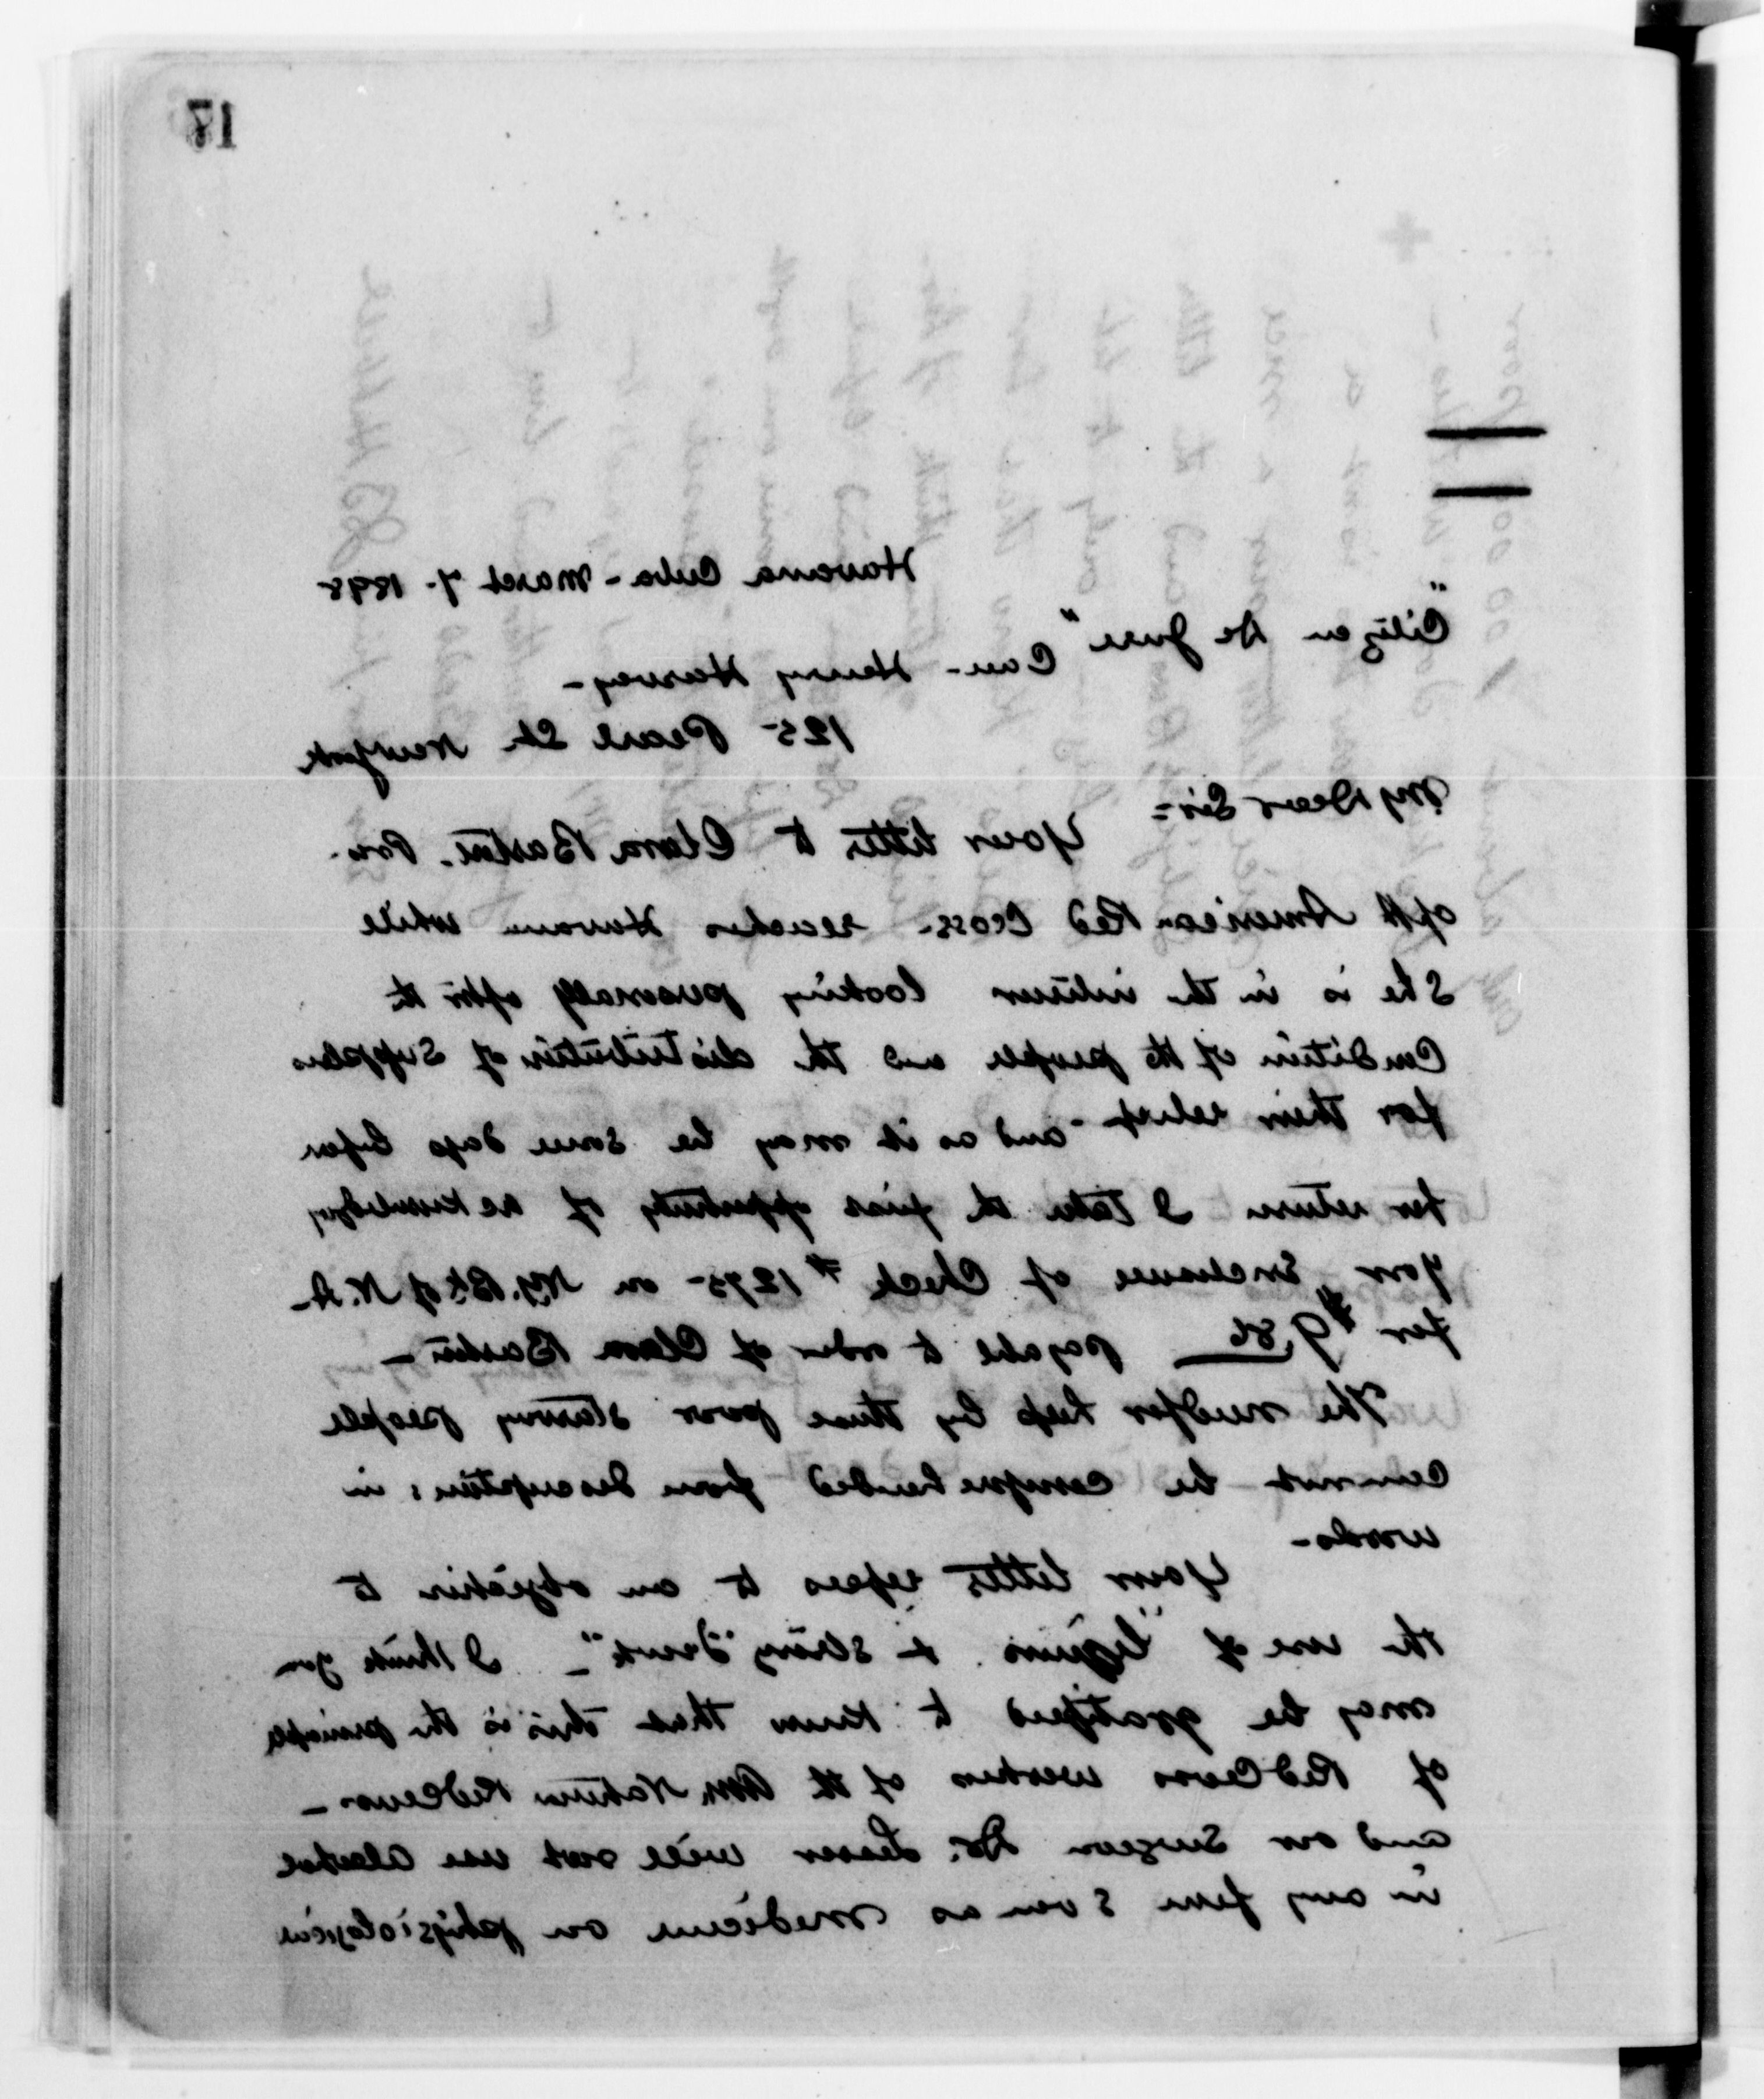 17
Havana Cuba - March 7. 1898
"Citizen De Jure" Cau- Henry Harvey-
125 Pearl St. New York
My Dear Sir=
Your letter to Clara Barton. Prs.
of the American Red Cross- reaches Havana while
She is in the interior looking personally after the
Condition of the people and the distribution of Supplies
for their relief - and as it may be some days before
her return I take the first opportunity of acknowledging
your inclosure of Check # 1275- on N.Y. Bk of N.A-
for $9.86 payable to order of Clara Barton -
The need for help by these poor starving people
cannot be comprehended from descriptions in
words-
Your letter refers to an objection to
the use of "liquors & strong Drink"- I think you
may be gratified to know that this is the principle
of Red Cross workers of the Am. National Red Cross -
and our Surgeon Dr. Lesser will not use alcohol
in any form even as medicine on physiological